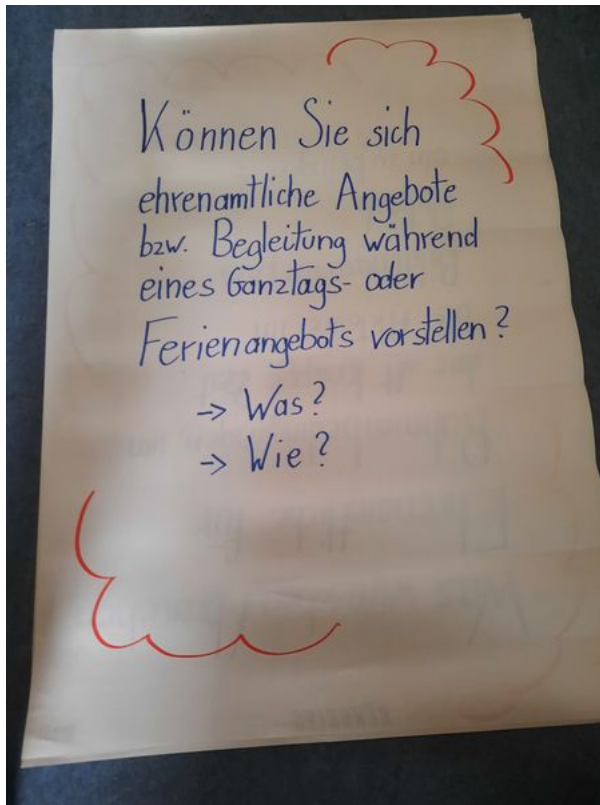 Können Sie sich
ehrenamtliche Angebote
bzw. Begleitung während
eines Ganztags- oder
Ferienangebots vorstellen?
-> Was?
-> Wie?